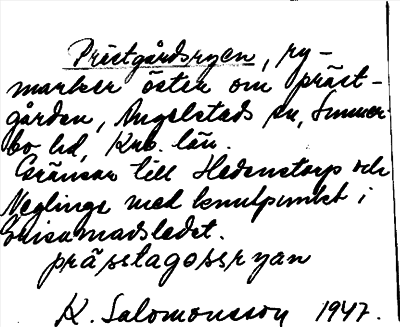 Prästgårdsryen, ry-
marker öster om präst-
gården, Angelstads sn, Sunner-
bo hd, Krb. län.
Gränsar till Hedenstorp och
Neglinge med knutpunkt i
Grisamadsledet.
prässtagossryan
K. Salomonsson 1947.